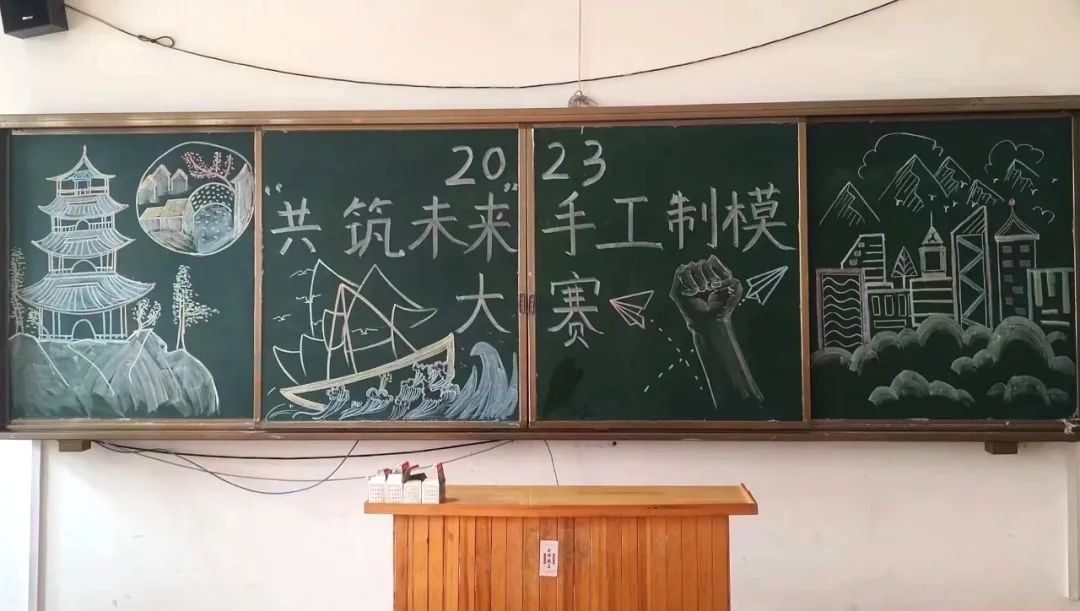 2023
"共筑未来"手工制模
大赛